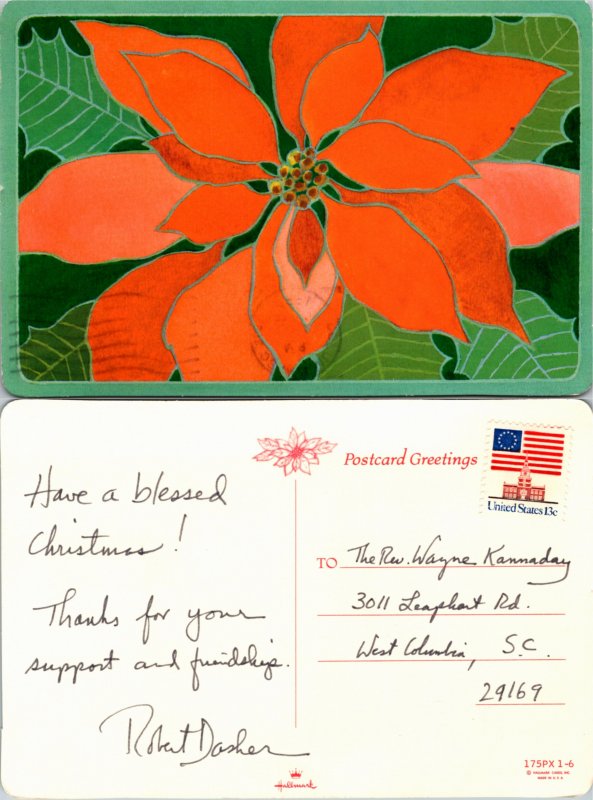 Postcard Greetings
United States 13c
Have a blessed
Christmas!
Thanks for your
support and friendship.
Robert Dasher
TO The Rev. Wayne Kannaday
3011 Leaphart Rd.
West Columbia, S.C.
29169
Hallmark
175PX 1-6
© HALLMARK CARDS, INC.
MADE IN U.S.A.